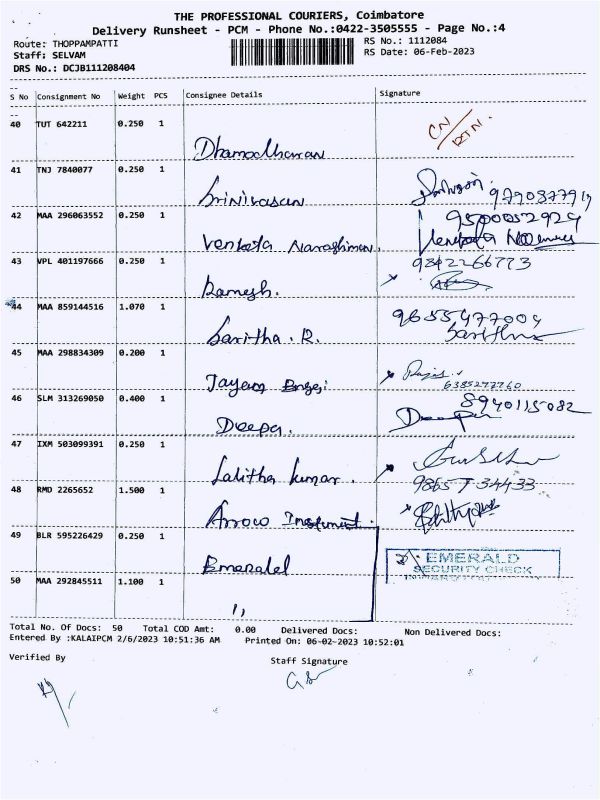 THE PROFESSIONAL COURIERS, Coimbatore
Delivery Runsheet - PCM - Phone No.:0422-3505555 - Page No.:4
Route: THOPPAMPATTI RS No.: 1112084
Staff: SELVAM RS Date: 06-Feb-2023
DRS No.: DCJB111208404
S No Consignment No Weight PCS Consignee Details Signature
40 TUT 642211 0.250 1 Dhamodharan CN/RTN.
41 TNJ 7840077 0.250 1 Srinivasan
42 MAA 296063552 0.250 1 Venkata Narashiman. 9500052924
43 VPL 401197666 0.250 1 Ramesh. 9842266773
44 MAA 859144516 1.070 1 Saritha. R. 9655477004 Saritha
45 MAA 298834309 0.200 1 Jayam 6385277760
46 SLM 313269050 0.400 1 Deepa. 8940115082 Deepa
47 IXM 503099391 0.250 1 Lalitha kumar. 9865734433
48 RMD 2265652 1.500 1 Arrow
49 BLR 595226429 0.250 1 Emerald EMERALD
SECURITY CHECK
50 MAA 292845511 1.100 1 "
Total No. Of Docs: 50 Total COD Amt: 0.00 Delivered Docs: Non Delivered Docs:
Entered By :KALAIPCM 2/6/2023 10:51:36 AM Printed On: 06-02-2023 10:52:01
Verified By Staff Signature